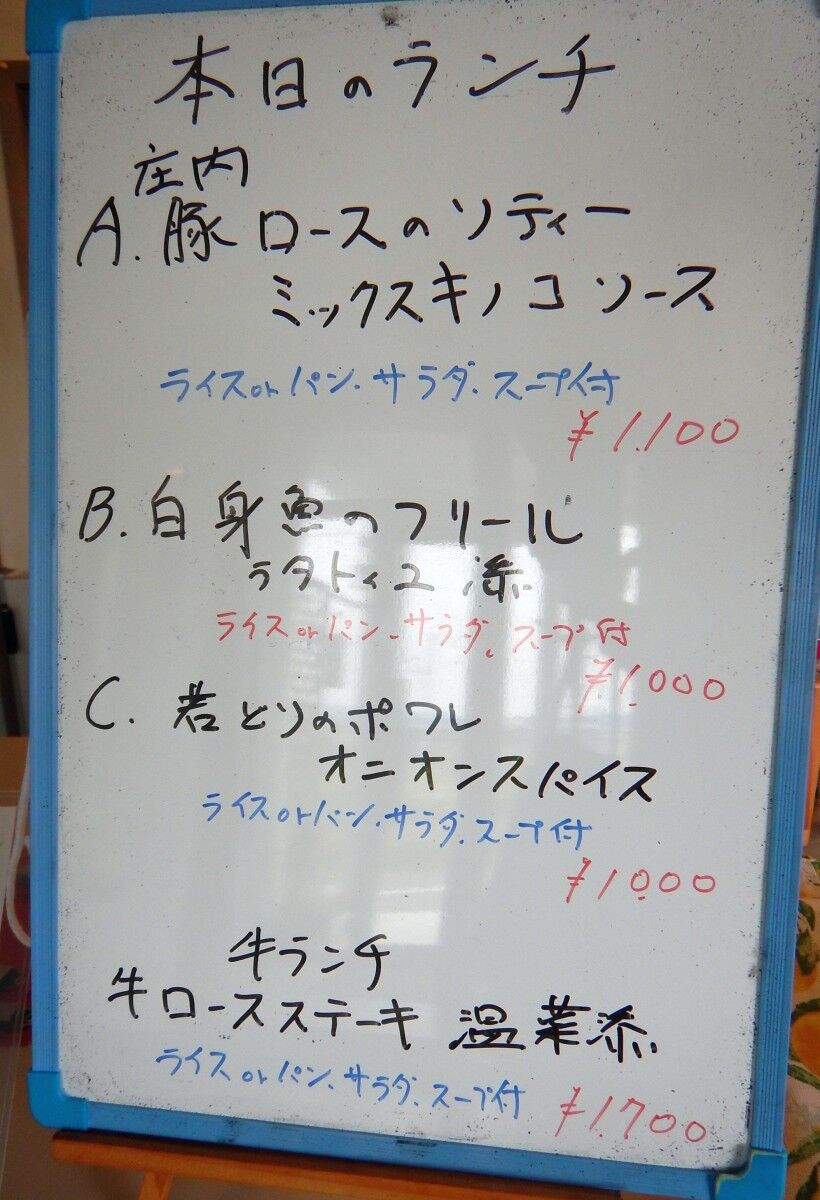 本日のランチ
庄内
A. 豚ロースのソティー
ミックスキノコソース
ライスorパン、サラダ、スープ付
¥1.100
B. 白身魚のフリール
ラタトィユ添
ライスorパン、サラダ、スープ付
¥1.000
C. 若どりのポワレ
オニオンスパイス
ライスorパン、サラダ、スープ付
¥1.000
牛ランチ
牛ロースステーキ 温菜添
ライスorパン、サラダ、スープ付
¥1.700